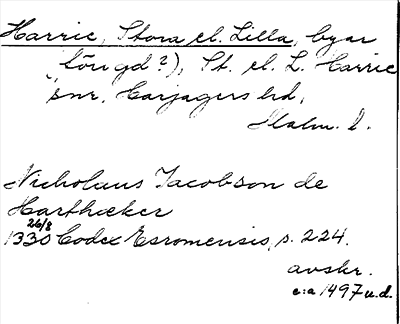 Harrie, Stora el. Lilla, byar
(öu gd?), St. el. L. Harrie
snr, Harjagers hd,
Malm. l.
Nicholaus Jacobson de
Harthæker
26/8
1330 Codex Esromensis, s. 224.
avskr.
c:a 1497 u.d.